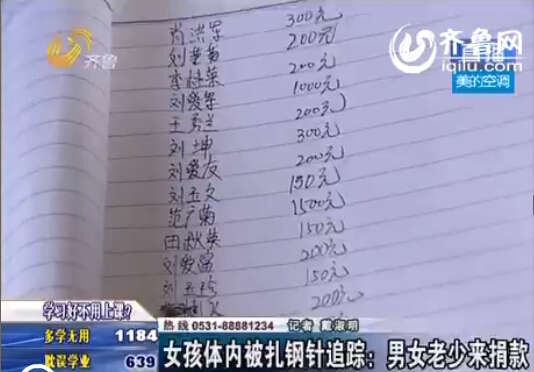 齐鲁
齐鲁网
iqilu.com
直播
美的空调
肖洪军 300元
刘 200元
李桂荣 200元
刘爱军 1000元
王秀兰 200元
刘坤 300元
刘爱友 200元
刘玉文 150元
范广菊 1500元
田秋荣 150元
刘爱富 200元
刘玉 150元
200元
学习好不用上课?
多学无用 1184
耽误学业 639
热线 0531-88881234 记者 戴淑明
女孩体内被扎钢针追踪：男女老少来捐款